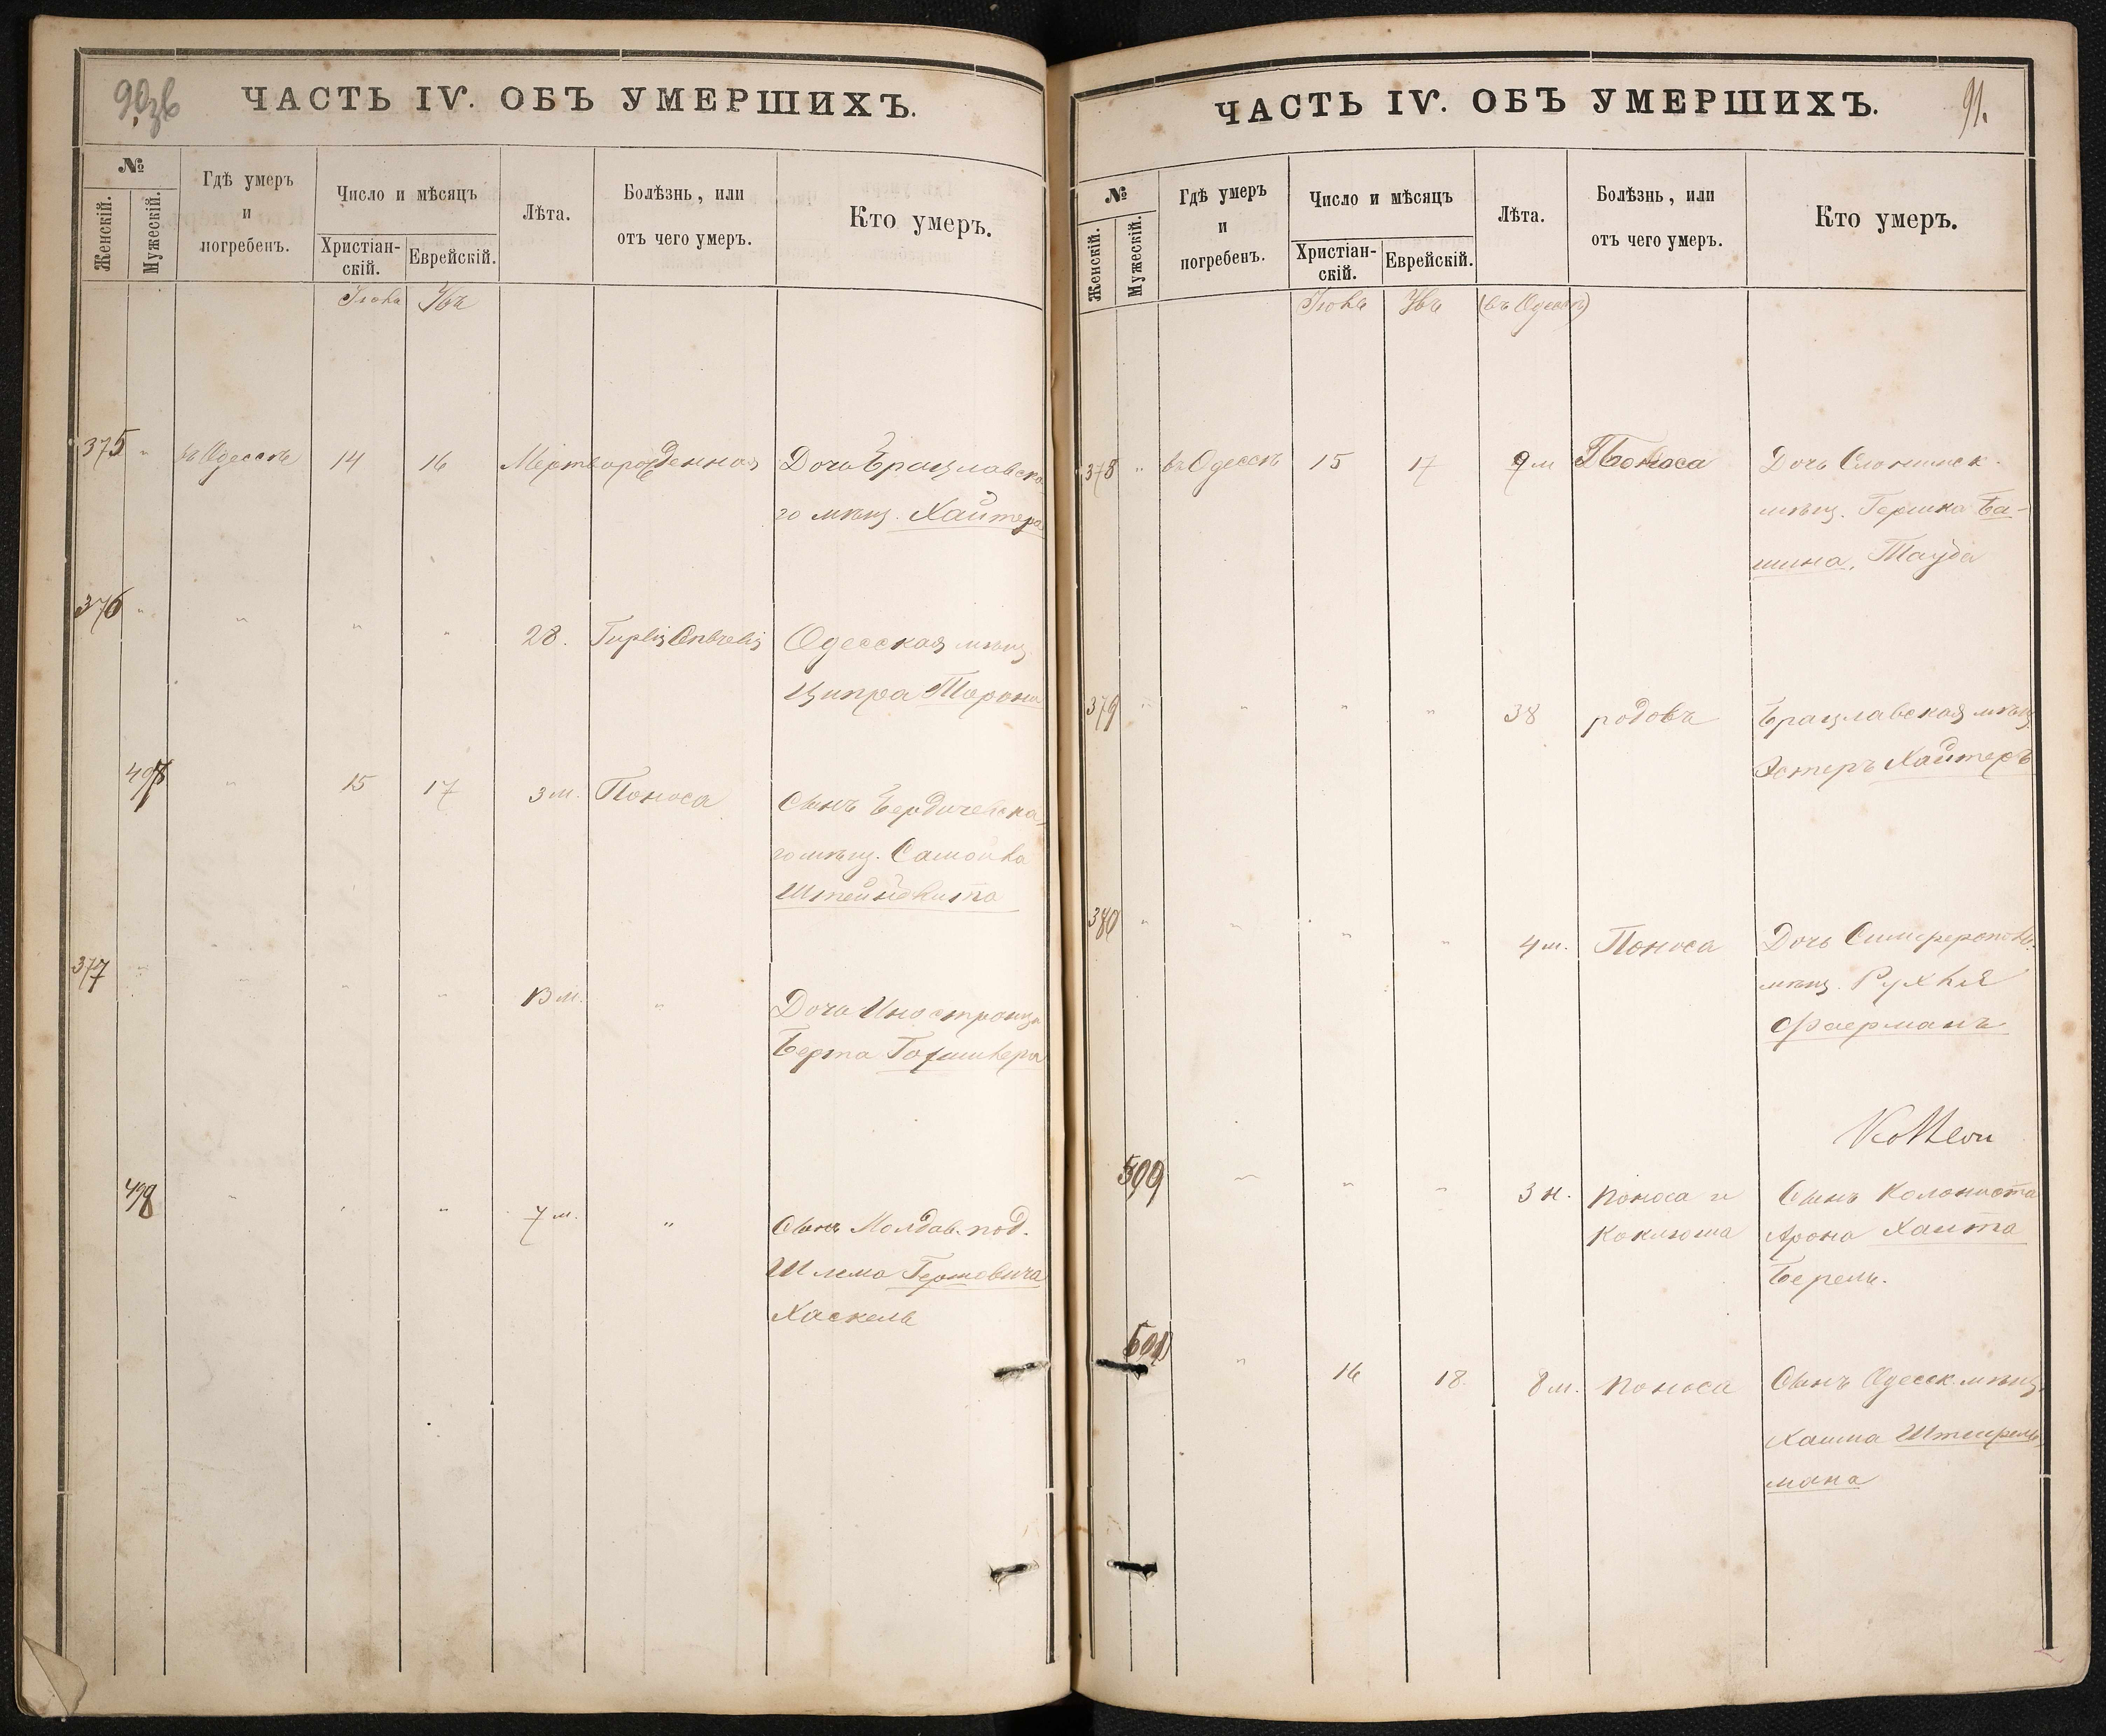 ЧАСТЬ IV. ОБЪ УМЕРШИХЪ.
№
Женскій.
Мужескій.
Гдѣ умеръ
и
погребенъ.
Число и мѣсяцъ
Христіан-
скій.
Еврейскій.
Лѣта.
Болѣзнь, или
отъ чего умеръ.
Кто умеръ.
375 " въ Одессѣ 14 16 Мертворожденная Дочь Брацлавска-
го мѣщ. Хайтера
376 " " " " 28. Одесская мѣщ.
Ципра
" 15 17 3 м. Поноса Сынъ Бердичевска-
го мѣщ. Самойла
377 " " " " 13 м. " Дочь Иностранца
Берта
498 " " " 7 м. " Сынъ Молдав. под.
Шлема Гершовича
Хаскель
ЧАСТЬ IV. ОБЪ УМЕРШИХЪ.
91.
№
Женскій.
Мужескій.
Гдѣ умеръ
и
погребенъ.
Число и мѣсяцъ
Христіан-
скій.
Еврейскій.
Лѣта.
Болѣзнь, или
отъ чего умеръ.
Кто умеръ.
(въ Одессѣ)
378 " въ Одессѣ 15 17 9 м Поноса Дочь Слонимск.
мѣщ. Гершка Ба-
шина, Тауба
379 " " " " 38 родовъ Брацлавская мѣщ.
Эстеръ Хайтеръ
380 " " " " 4 м. Поноса Дочь Симферопол.
мѣщ. Рухля
Фаерманъ
" " " 3 н. поноса и Сынъ Колониста
коклюша Арона Хаита
Берель.
" 16 18. 8 м. поноса Сынъ Одесск. мѣщ.
Хаима
мана